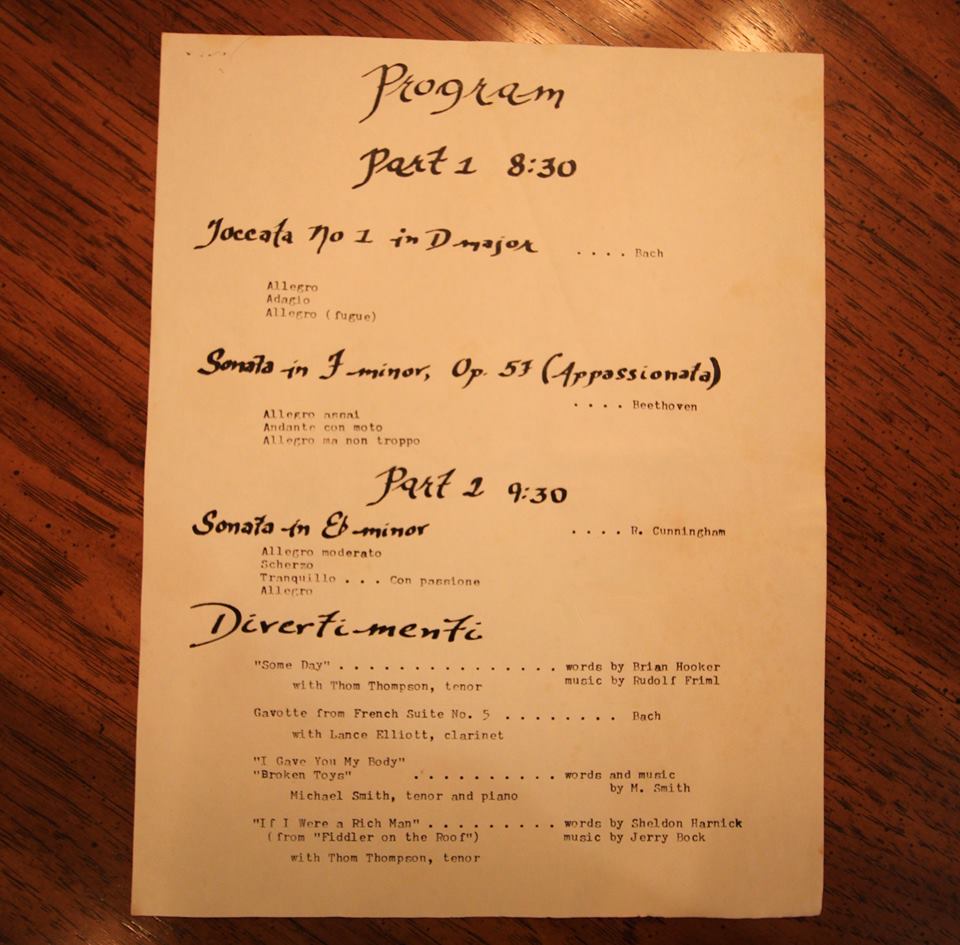 Program
Part 1 8:30
Toccata No 1 in D major . . . . Bach
Allegro
Adagio
Allegro (fugue)
Sonata in F minor, Op. 57 (Appassionata)
. . . . Beethoven
Allegro assai
Andante con moto
Allegro ma non troppo
Part 2 9:30
Sonata in Eb minor . . . . R. Cunningham
Allegro moderato
Scherzo
Tranquillo . . . Con passione
Allegro
Divertimenti
"Some Day" . . . . . . . . . . . . . . . . words by Brian Hooker
music by Rudolf Friml
with Thom Thompson, tenor
Gavotte from French Suite No. 5 . . . . . . . . Bach
with Lance Elliott, clarinet
"I Gave You My Body"
"Broken Toys" . . . . . . . . . . words and music
by M. Smith
Michael Smith, tenor and piano
"If I Were a Rich Man" . . . . . . . . . words by Sheldon Harnick
(from "Fiddler on the Roof") music by Jerry Bock
with Thom Thompson, tenor